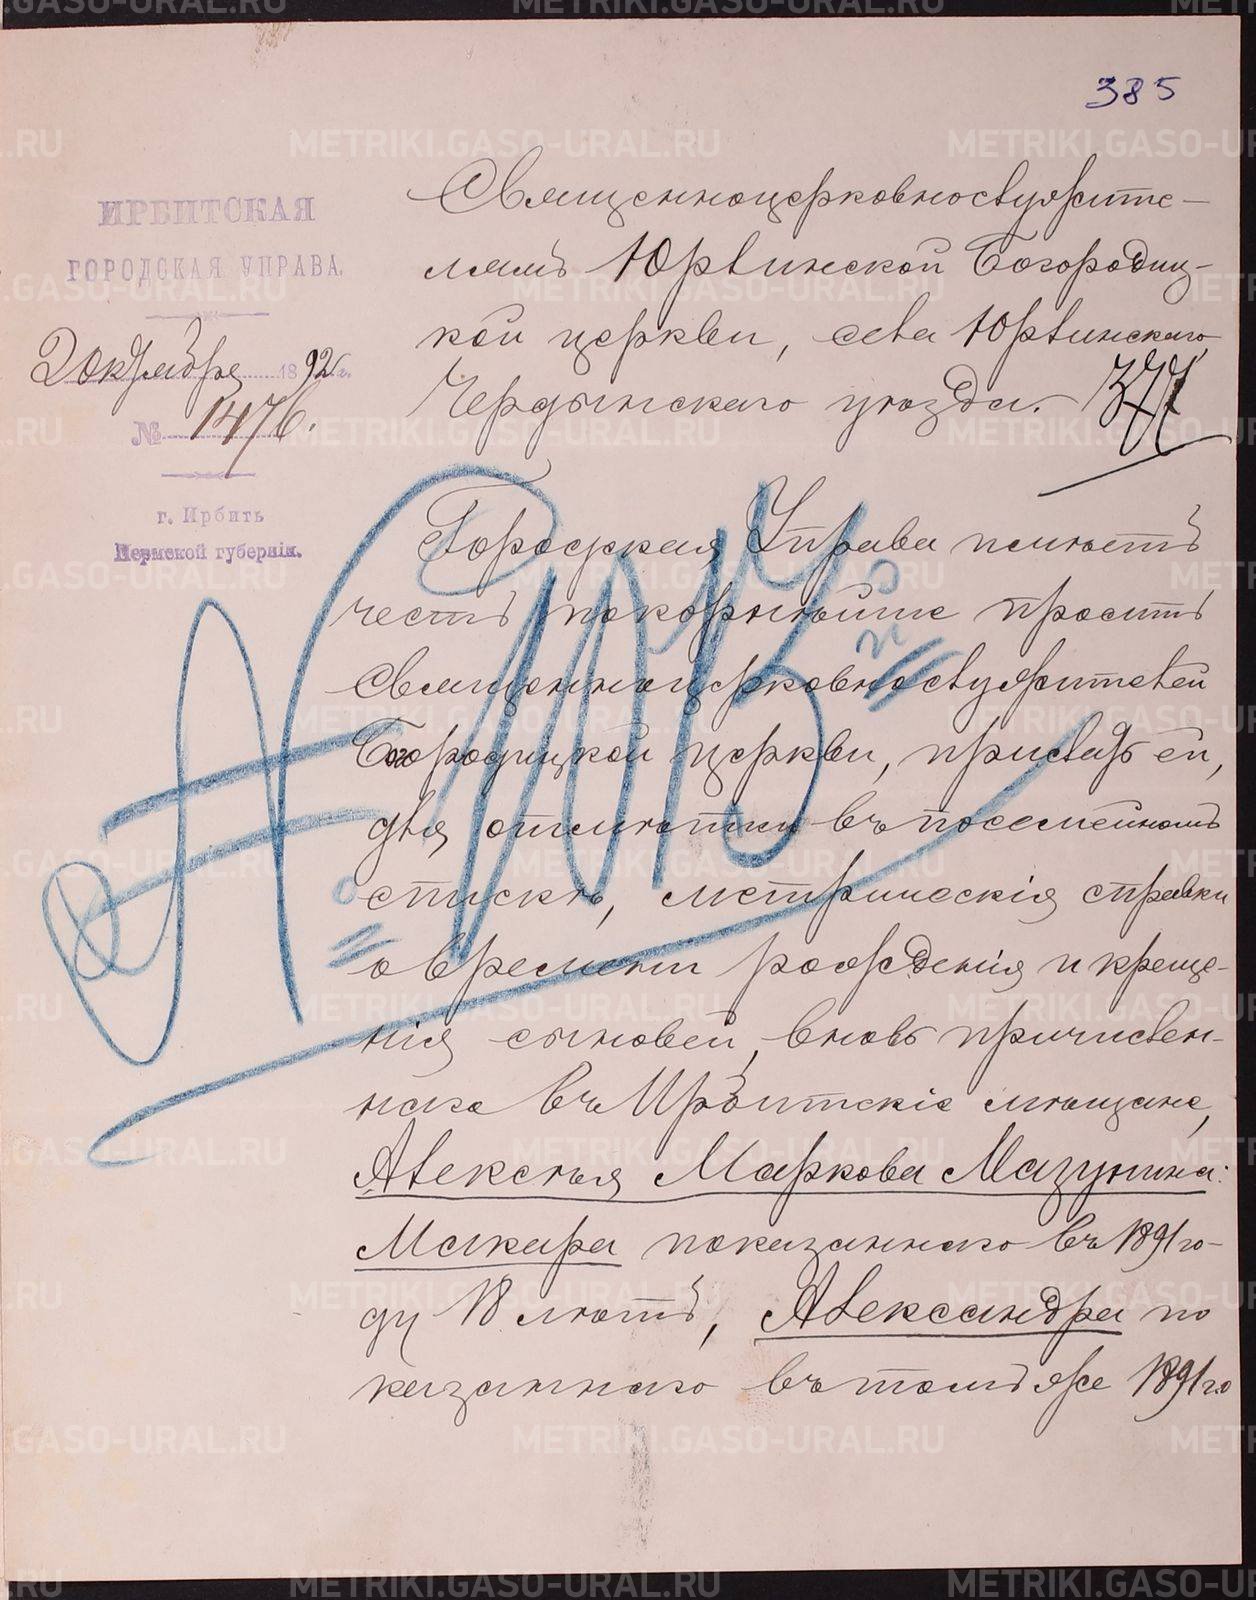 385
ИРБИТСКАЯ
ГОРОДСКАЯ УПРАВА.
2 октября 1892 г.
№ 1476.
г. Ирбить
Пермской губерніи.
Священноцерковнослужите-
лямъ Юрлинской Богородиц-
кой церкви, села Юрлинскаго,
Чердынскаго уѣзда.
377
Городская Управа имѣетъ
честь покорнѣйше просить
священноцерковнослужителей
Богородицкой церкви, прислать ей,
для отмѣтки въ посемейномъ
спискѣ, метрическія справки
о времени рожденія и креще-
нія сыновей, вновь причислен-
наго въ Ирбитскіе мѣщане,
Алексѣя Маркова Мазунина:
Макара показаннаго въ 1891 го-
ду 18 лѣтъ, Александра по
казаннаго въ томъ же 1891 го